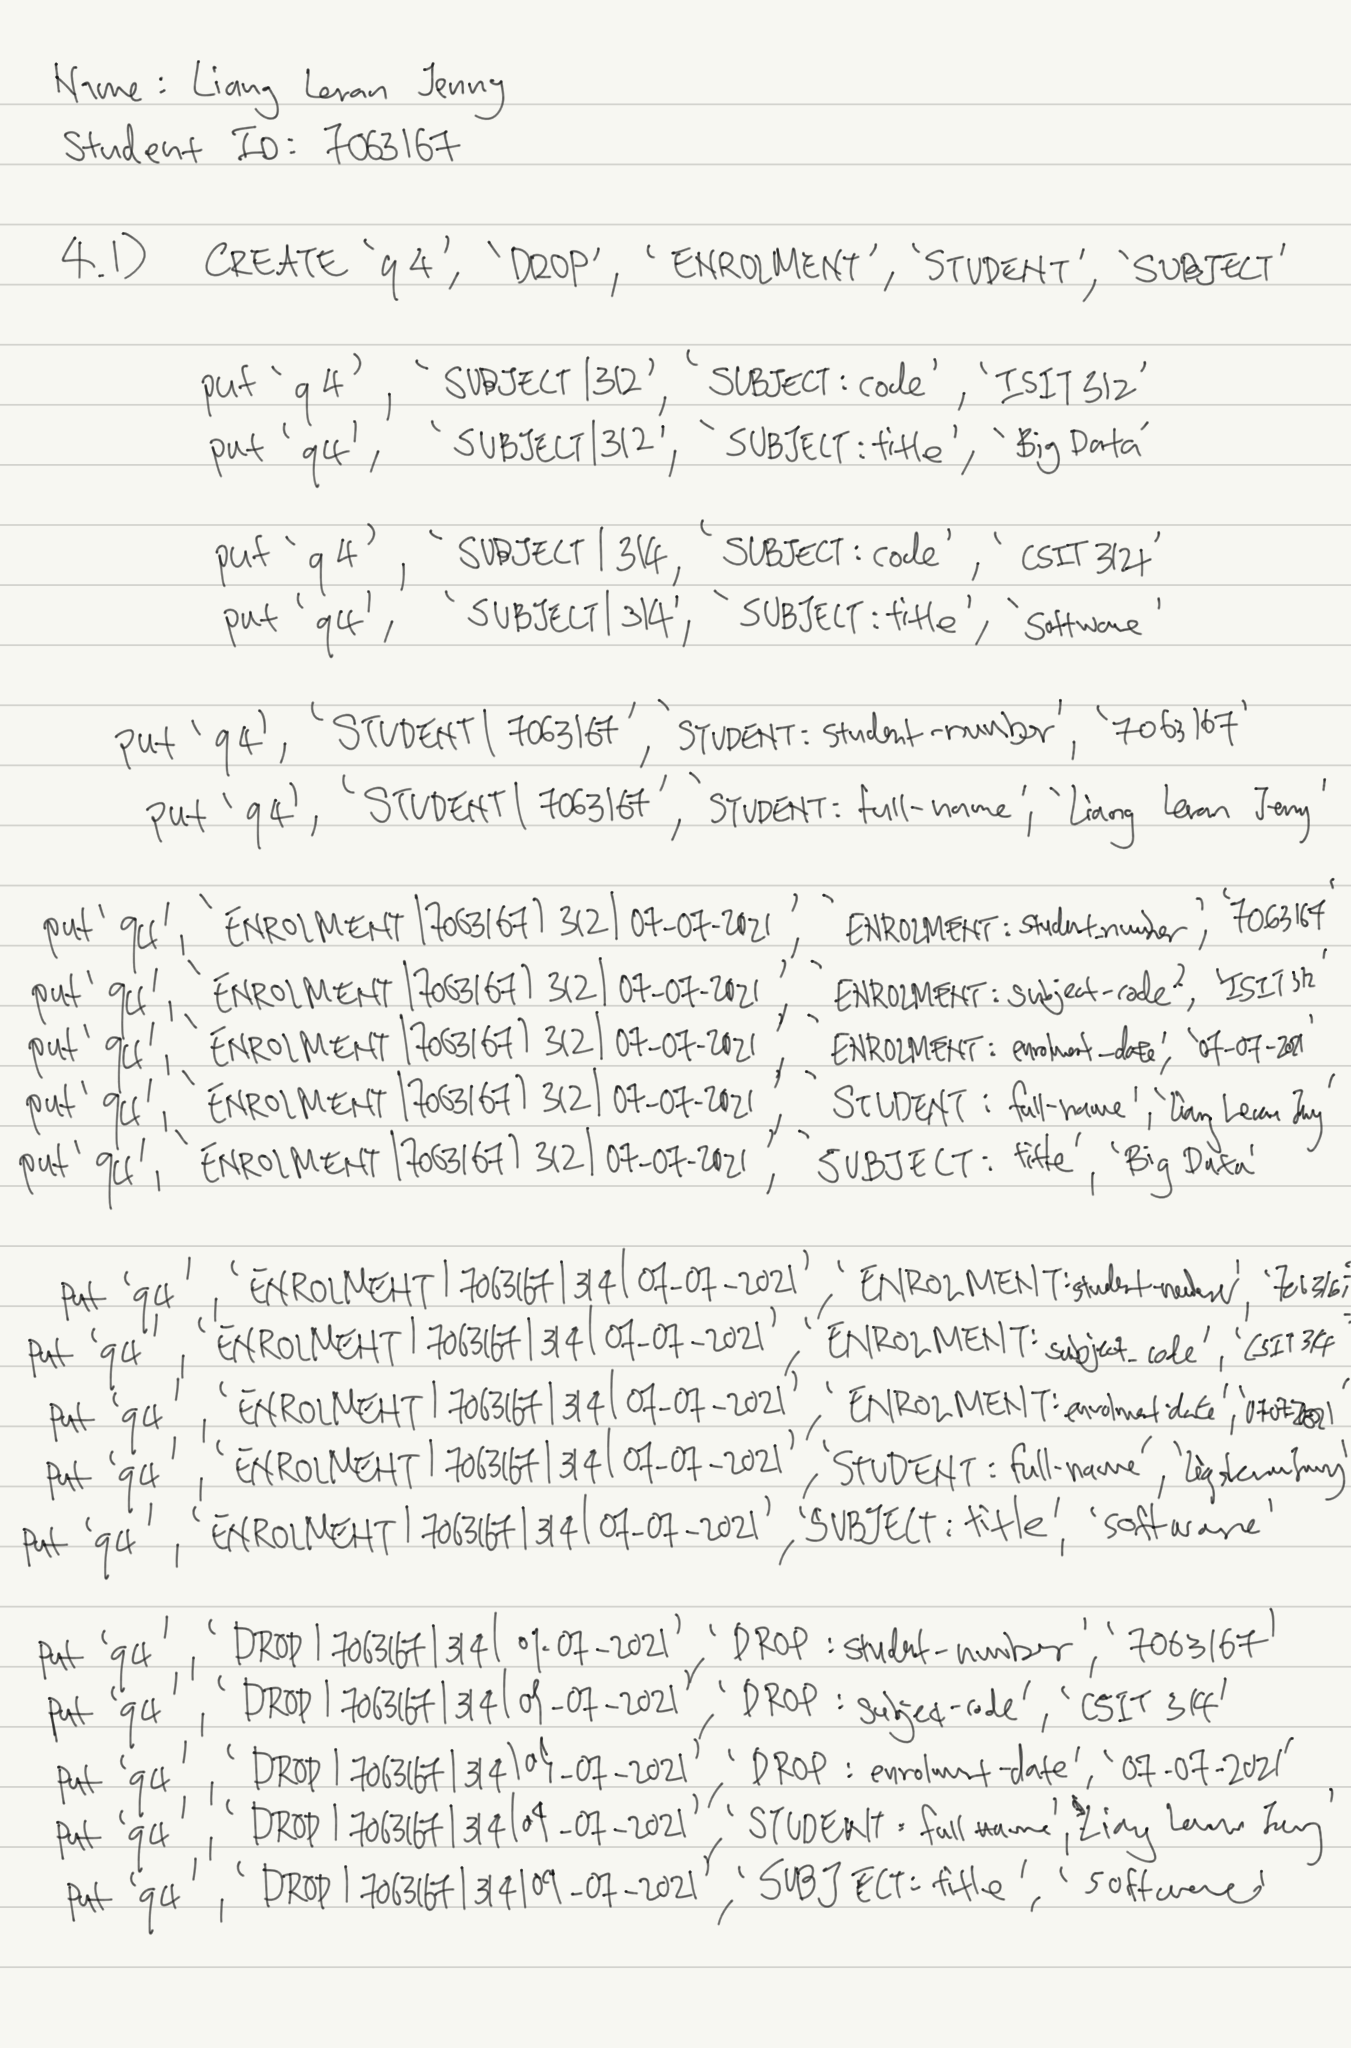 Name : Liang Leran Jenny
Student ID: 7063167
4.1) CREATE 'q4', 'DROP', 'ENROLMENT', 'STUDENT', 'SUBJECT'
put 'q4', 'SUBJECT|312', 'SUBJECT: code', 'ISIT312'
put 'q4', 'SUBJECT|312', 'SUBJECT: title', 'Big Data'
put 'q4', 'SUBJECT|314, 'SUBJECT: code', 'CSIT 324'
put 'q4', 'SUBJECT|314', 'SUBJECT: title', 'Software'
put 'q4', 'STUDENT| 7063167', 'STUDENT: student-number', '7063167'
put 'q4', 'STUDENT| 7063167', 'STUDENT: full-name', 'Liang Leran Jenny'
put 'q4', 'ENROLMENT|7063167|312|07-07-2021', 'ENROLMENT: student_number', '7063167'
put 'q4', 'ENROLMENT|7063167|312|07-07-2021', 'ENROLMENT: subject-code', 'ISIT312'
put 'q4', 'ENROLMENT|7063167|312|07-07-2021', 'ENROLMENT: enrolment-date', '07-07-2021'
put 'q4', 'ENROLMENT|7063167|312|07-07-2021', 'STUDENT : full-name', 'Liang Leran Jenny'
put 'q4', 'ENROLMENT|7063167|312|07-07-2021', 'SUBJECT: title', 'Big Data'
Put 'q4', 'ENROLMENT|7063167|314|07-07-2021', 'ENROLMENT: student-number', '7063167'
Put 'q4', 'ENROLMENT|7063167|314|07-07-2021', 'ENROLMENT: subject_code', 'CSIT314
Put 'q4', 'ENROLMENT|7063167|314|07-07-2021', 'ENROLMENT: enrolment-date', '
Put 'q4', 'ENROLMENT|7063167|314|07-07-2021', 'STUDENT : full-name', '
Put 'q4', 'ENROLMENT|7063167|314|07-07-2021', 'SUBJECT: title', 'software'
Put 'q4', 'DROP|7063167|314|09-07-2021', 'DROP : student-number', '7063167'
Put 'q4', 'DROP|7063167|314|09-07-2021', 'DROP : subject-code', 'CSIT 314'
Put 'q4', 'DROP|7063167|314|09-07-2021', 'DROP : enrolment-date', '07-07-2021'
Put 'q4', 'DROP|7063167|314|09-07-2021', 'STUDENT : full name', 'Liang Leran Jenny'
Put 'q4', 'DROP|7063167|314|09-07-2021', 'SUBJECT: title', 'software'